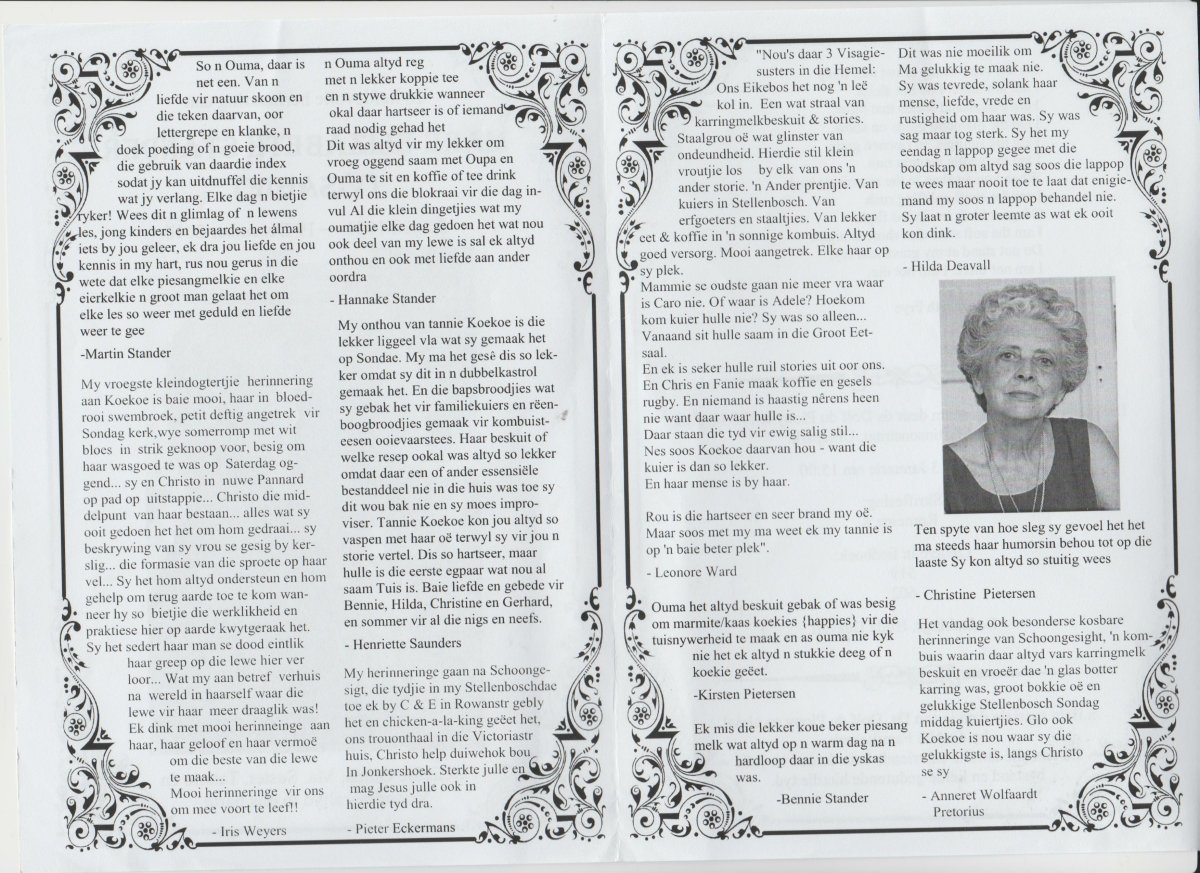 So n Ouma, daar is
net een. Van n
liefde vir natuur skoon en
die teken daarvan, oor
lettergrepe en klanke, n
doek poeding of n goeie brood,
die gebruik van daardie index
sodat jy kan uitdnuffel die kennis
wat jy verlang. Elke dag n bietjie
ryker! Wees dit n glimlag of n lewens
les, jong kinders en bejaardes het álmal
iets by jou geleer, ek dra jou liefde en jou
kennis in my hart, rus nou gerus in die
wete dat elke piesangmelkie en elke
eierkelkie n groot man gelaat het om
elke les so weer met geduld en liefde
weer te gee
-Martin Stander
My vroegste kleindogtertjie herinnering
aan Koekoe is baie mooi, haar in bloed-
rooi swembroek, petit deftig angetrek vir
Sondag kerk,wye somerromp met wit
bloes in strik geknoop voor, besig om
haar wasgoed te was op Saterdag og-
gend... sy en Christo in nuwe Pannard
op pad op uitstappie... Christo die mid-
delpunt van haar bestaan... alles wat sy
ooit gedoen het het om hom gedraai... sy
beskrywing van sy vrou se gesig by ker-
slig... die formasie van die sproete op haar
vel... Sy het hom altyd ondersteun en hom
gehelp om terug aarde toe te kom wan-
neer hy so bietjie die werklikheid en
praktiese hier op aarde kwytgeraak het.
Sy het sedert haar man se dood eintlik
haar greep op die lewe hier ver
loor... Wat my aan betref verhuis
na wereld in haarself waar die
lewe vir haar meer draaglik was!
Ek dink met mooi herinneinge aan
haar, haar geloof en haar vermoë
om die beste van die lewe
te maak...
Mooi herinneringe vir ons
om mee voort te leef!!
- Iris Weyers
n Ouma altyd reg
met n lekker koppie tee
en n stywe drukkie wanneer
okal daar hartseer is of iemand
raad nodig gehad het
Dit was altyd vir my lekker om
vroeg oggend saam met Oupa en
Ouma te sit en koffie of tee drink
terwyl ons die blokraai vir die dag in-
vul Al die klein dingetjies wat my
oumatjie elke dag gedoen het wat nou
ook deel van my lewe is sal ek altyd
onthou en ook met liefde aan ander
oordra
- Hannake Stander
My onthou van tannie Koekoe is die
lekker liggeel vla wat sy gemaak het
op Sondae. My ma het gesê dis so lek-
ker omdat sy dit in n dubbelkastrol
gemaak het. En die bapsbroodjies wat
sy gebak het vir familiekuiers en rëen-
boogbroodjies gemaak vir kombuist-
eesen ooievaarstees. Haar beskuit of
welke resep ookal was altyd so lekker
omdat daar een of ander essensiële
bestanddeel nie in die huis was toe sy
dit wou bak nie en sy moes impro-
viser. Tannie Koekoe kon jou altyd so
vaspen met haar oë terwyl sy vir jou n
storie vertel. Dis so hartseer, maar
hulle is die eerste egpaar wat nou al
saam Tuis is. Baie liefde en gebede vir
Bennie, Hilda, Christine en Gerhard,
en sommer vir al die nigs en neefs.
- Henriette Saunders
My herinneringe gaan na Schoonge-
sigt, die tydjie in my Stellenboschdae
toe ek by C & E in Rowanstr gebly
het en chicken-a-la-king geëet het,
ons trouonthaal in die Victoriastr
huis, Christo help duiwehok bou
In Jonkershoek. Sterkte julle en
mag Jesus julle ook in
hierdie tyd dra.
- Pieter Eckermans
"Nou's daar 3 Visagie-
susters in die Hemel:
Ons Eikebos het nog 'n leë
kol in. Een wat straal van
karringmelkbeskuit & stories.
Staalgrou oë wat glinster van
ondeundheid. Hierdie stil klein
vroutjie los by elk van ons 'n
ander storie. 'n Ander prentjie. Van
kuiers in Stellenbosch. Van
erfgoeters en staaltjies. Van lekker
eet & koffie in 'n sonnige kombuis. Altyd
goed versorg. Mooi aangetrek. Elke haar op
sy plek.
Mammie se oudste gaan nie meer vra waar
is Caro nie. Of waar is Adele? Hoekom
kom kuier hulle nie? Sy was so alleen...
Vanaand sit hulle saam in die Groot Eet-
saal.
En ek is seker hulle ruil stories uit oor ons.
En Chris en Fanie maak koffie en gesels
rugby. En niemand is haastig nêrens heen
nie want daar waar hulle is...
Daar staan die tyd vir ewig salig stil...
Nes soos Koekoe daarvan hou - want die
kuier is dan so lekker.
En haar mense is by haar.
Rou is die hartseer en seer brand my oë.
Maar soos met my ma weet ek my tannie is
op 'n baie beter plek".
- Leonore Ward
Ouma het altyd beskuit gebak of was besig
om marmite/kaas koekies {happies} vir die
tuisnywerheid te maak en as ouma nie kyk
nie het ek altyd n stukkie deeg of n
koekie geëet.
-Kirsten Pietersen
Ek mis die lekker koue beker piesang
melk wat altyd op n warm dag na n
hardloop daar in die yskas
was.
-Bennie Stander
Dit was nie moeilik om
Ma gelukkig te maak nie.
Sy was tevrede, solank haar
mense, liefde, vrede en
rustigheid om haar was. Sy was
sag maar tog sterk. Sy het my
eendag n lappop gegee met die
boodskap om altyd sag soos die lappop
te wees maar nooit toe te laat dat enigie-
mand my soos n lappop behandel nie.
Sy laat n groter leemte as wat ek ooit
kon dink.
- Hilda Deavall
Ten spyte van hoe sleg sy gevoel het het
ma steeds haar humorsin behou tot op die
laaste Sy kon altyd so stuitig wees
- Christine Pietersen
Het vandag ook besonderse kosbare
herinneringe van Schoongesight, 'n kom-
buis waarin daar altyd vars karringmelk
beskuit en vroeër dae 'n glas botter
karring was, groot bokkie oë en
gelukkige Stellenbosch Sondag
middag kuiertjies. Glo ook
Koekoe is nou waar sy die
gelukkigste is, langs Christo
se sy
- Anneret Wolfaardt
Pretorius